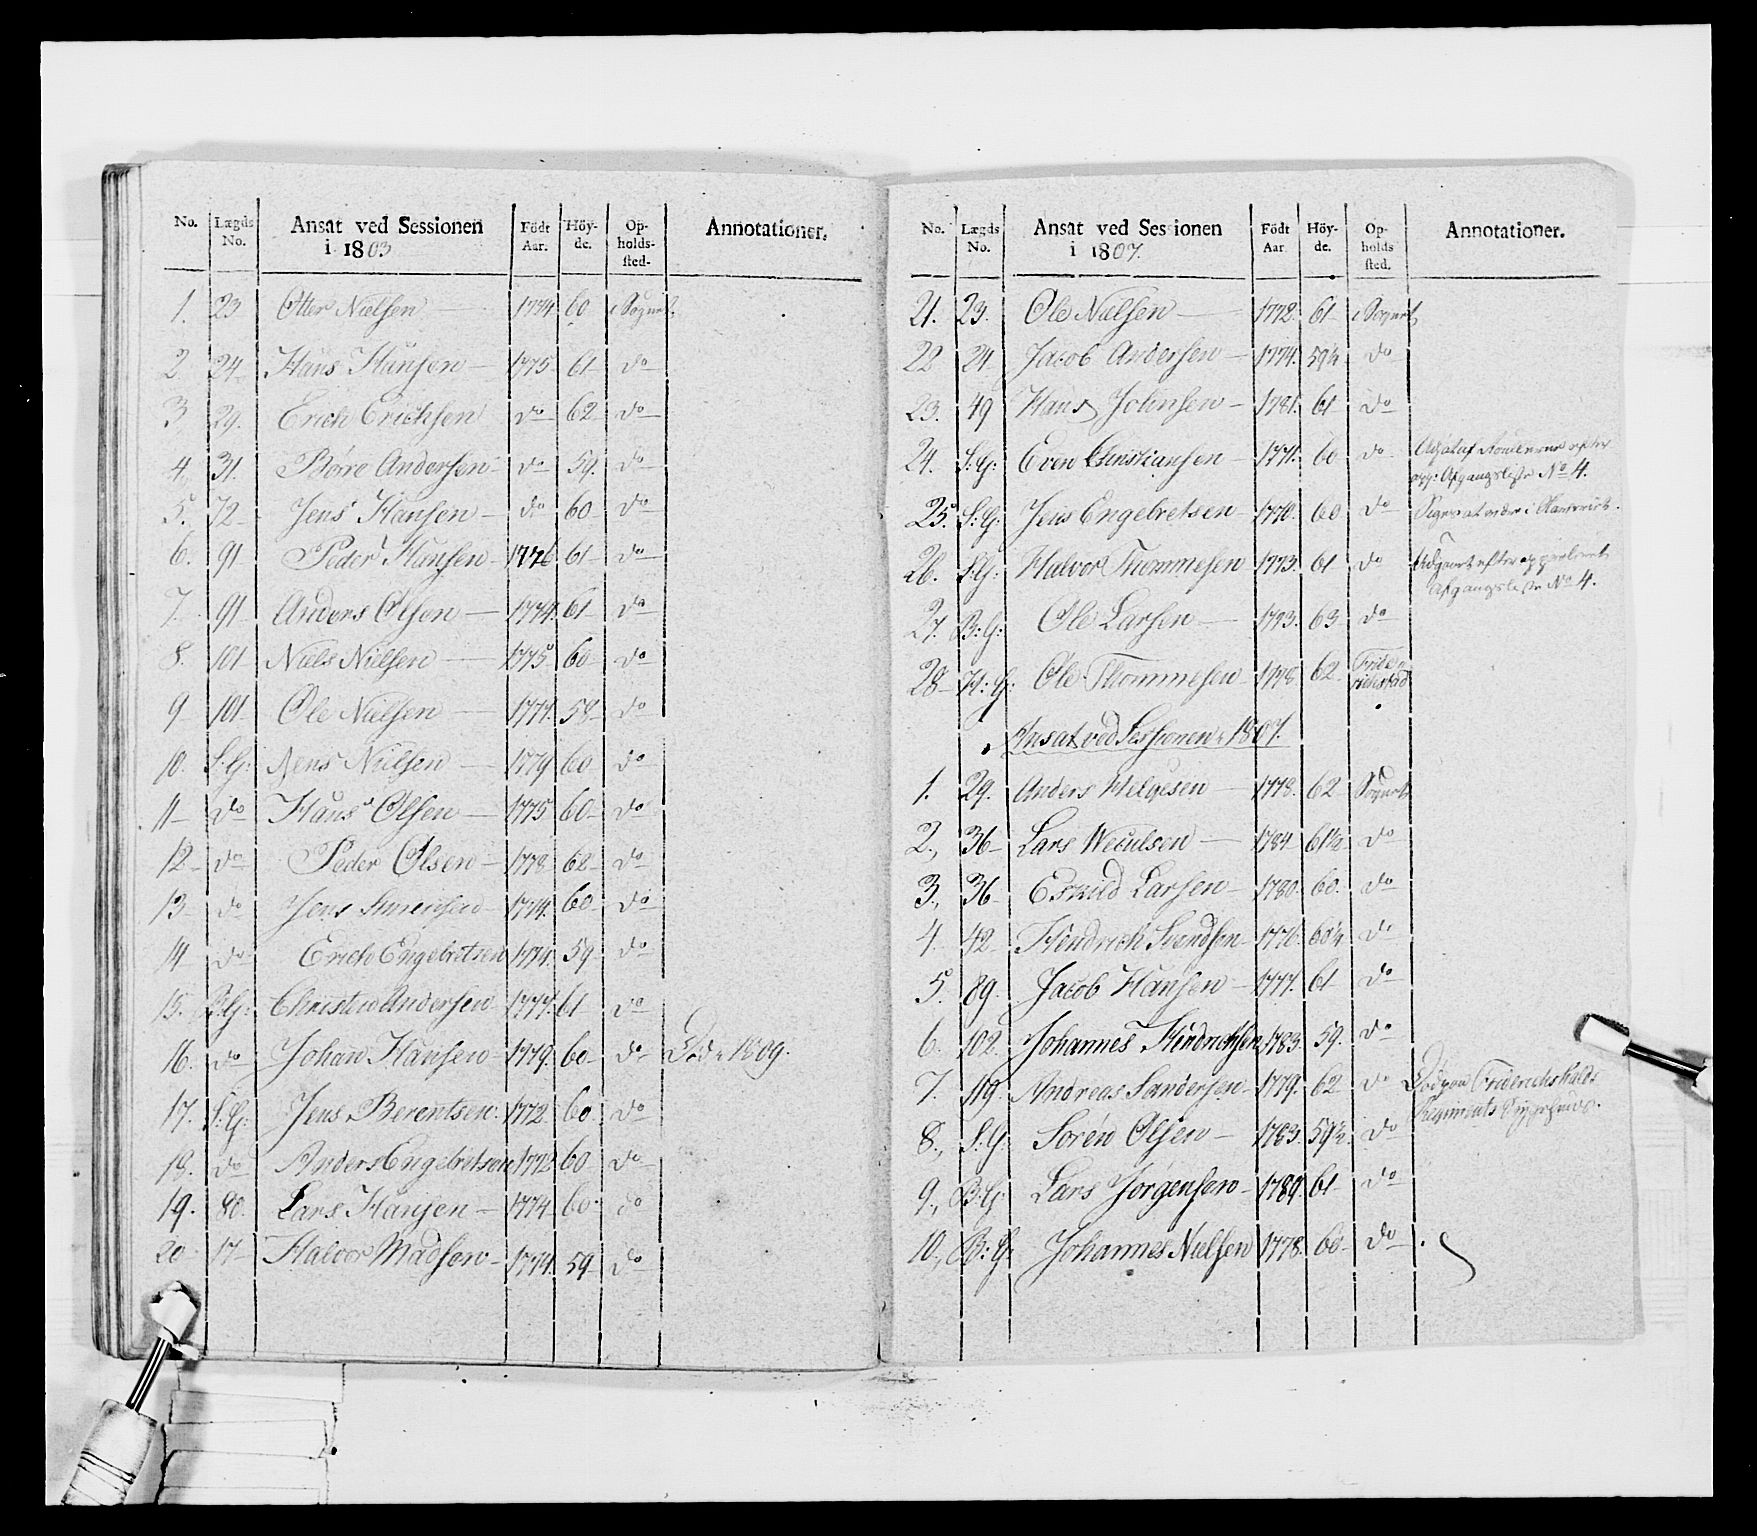 No. Lægds No. Ansat ved Sessionen i 1803 Födt Aar. Höyde. Opholdssted. Annotationer.
1. 23 Otter Nielsen 1774 60 i Sognet
2 24 Hans Hansen 1775 61 do
3 29. Erich Erichsen do 62 do
4 31. Börre Andersen do 59. do
5. 72 Jens Hansen do 60 do
6. 91 Peder Hansen 1776 61 do
7. 91 Anders Olsen 1774. 61 do
8. 101 Niels Nielsen 1775 60 do
9 101 Ole Nielsen 1777. 58 do
10. S:G: Jens Nielsen 1779 60 do
11 do Hans Olsen 1775 60 do
12 do Peder Olsen 1778. 62 do
13 do Jens 1774. 60 do
14 do Erich Engebretsen 1774. 59 do
15. S:G: Christen Andersen 1777. 61 do
16. do Johan Hansen 1779. 60 do Död 1809.
17. S:G: Jens Berentsen 1772. 60 do
18. do Anders Engebretsen 1772 60 do
19. 80. Lars Hansen 1774. 60 do
20 17 Halvor Madsen 1774. 59 do
No. Lægds No. Ansat ved Sessionen i 1807. Födt Aar Höyde. Opholds sted. Annotationer.
21. 23. Ole Nielsen 1772. 61 i Sognet
22 24 Jacob Andersen 1774. 59½ do
23. 49 Hans Johnsen 1781. 61 do
24. S:G: Even Christiansen 1771. 60 do
Afgangsliste No 4.
25. S:G: Jens Engebretsen 1770. 60 do
26. S:G: Halvor Thommesen 1773. 61 do Udgaaet efter
Afgangsliste No 4.
27. B:G: Ole Larsen 1773. 63 do
28 H:G: Ole Thommesen 1778 62 Friderichstad
Ansat ved Sessionen 1807.
1. 29. Anders Helgesen 1778. 62 Sognet
2., 36 Lars 1784 61½ do
3., 36 Eskild Larsen 1780. 60. do
4 42 Hendrich Svendsen 1776. 60¼ do
5. 89. Jacob Hansen 1777. 61 do
6. 102. Johannes Hindrichsen 1783. 59. do
7. 119. Andreas Sandersen 1779. 62 do Död paa Friderichshalds
Regiments Sygehuus.
8., S:G: Sören Olsen 1783. 59½ do
9., B:G: Lars Jörgensen 1789. 61 do
10., B:G: Johannes Nielsen 1778. 60 do